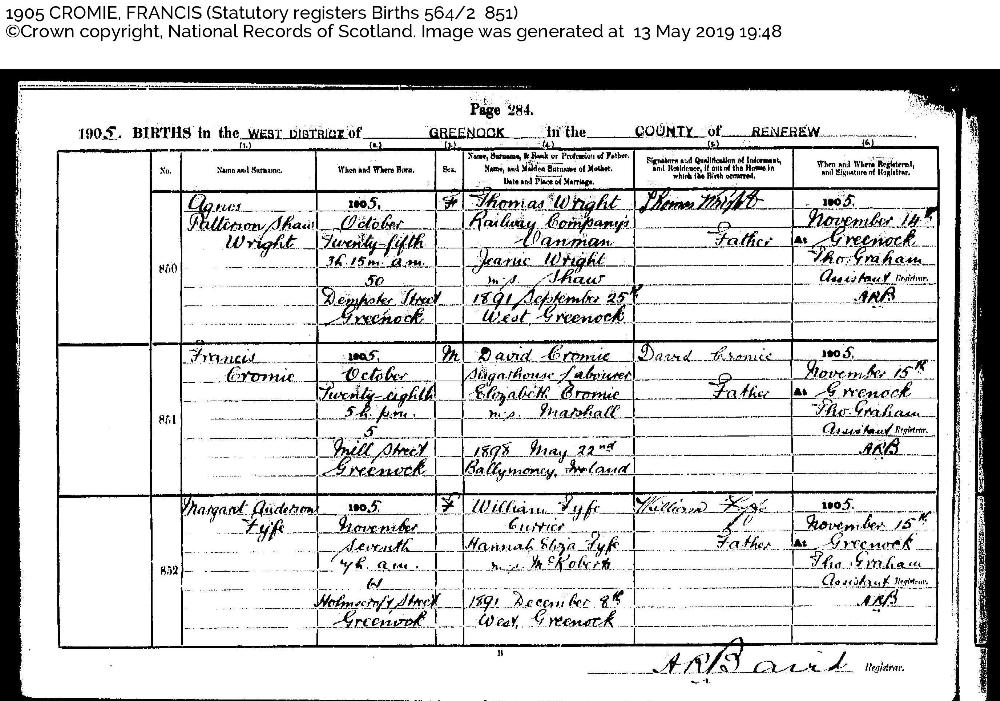 1905 CROMIE, FRANCIS (Statutory registers Births 564/2 851)
©Crown copyright, National Records of Scotland. Image was generated at 13 May 2019 19:48
Page 284.
1905. BIRTHS in the WEST DISTRICT of GREENOCK in the COUNTY of RENFREW
(1.) (2.) (3.) (4.) (5.) (6.)
No.
Name and Surname.
When and Where Born.
Sex.
Name, Surname, & Rank or Profession of Father.
Name, and Maiden Surname of Mother.
Date and Place of Marriage.
Signature and Qualification of Informant,
and Residence, if out of the House in
which the Birth occurred.
When and Where Registered,
and Signature of Registrar.
850
Agnes
Patterson Shaw
Wright
1905,
October
Twenty-fifth
3h. 15m. a.m.
50
Dempster Street
Greenock
F
Thomas Wright
Railway Company's
Vanman
Jeanie Wright
m.s. Shaw
1891 September 25th
West, Greenock
Thomas Wright
Father
1905.
November 14th
At Greenock
Tho. Graham
Assistant Registrar.
ARB
851
Francis
Cromie
1905.
October
Twenty-eighth
5h. p.m.
5
Mill Street
Greenock
M
David Cromie
Sugarhouse Labourer
Elizabeth Cromie
m.s. Marshall
1898 May 22nd
Ballymoney, Ireland
David Cromie
Father
1905.
November 15th
At Greenock
Tho. Graham
Assistant Registrar.
ARB
852
Margaret Anderson
Fyfe
1905.
November
Seventh
h. a.m.
Holmscroft Street
Greenock
F
William Fyfe
Currier
Hannah Eliza Fyfe
m.s. McRoberts
1891 December 8th
West, Greenock
William Fyfe
Father
1905.
November 15th
At Greenock
Tho. Graham
Assistant Registrar.
ARB
ARBaird Registrar.